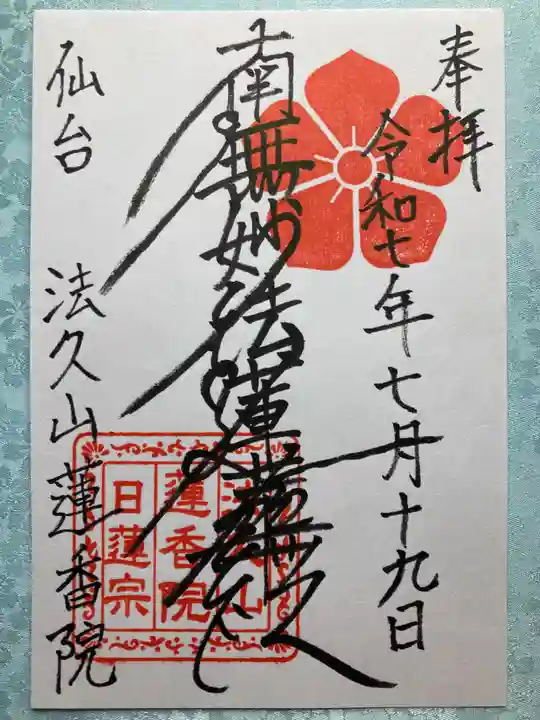 奉拝
令和七年七月十九日
南無妙法蓮華経
仙台 法久山 蓮香院
法久山
蓮香院
日蓮宗